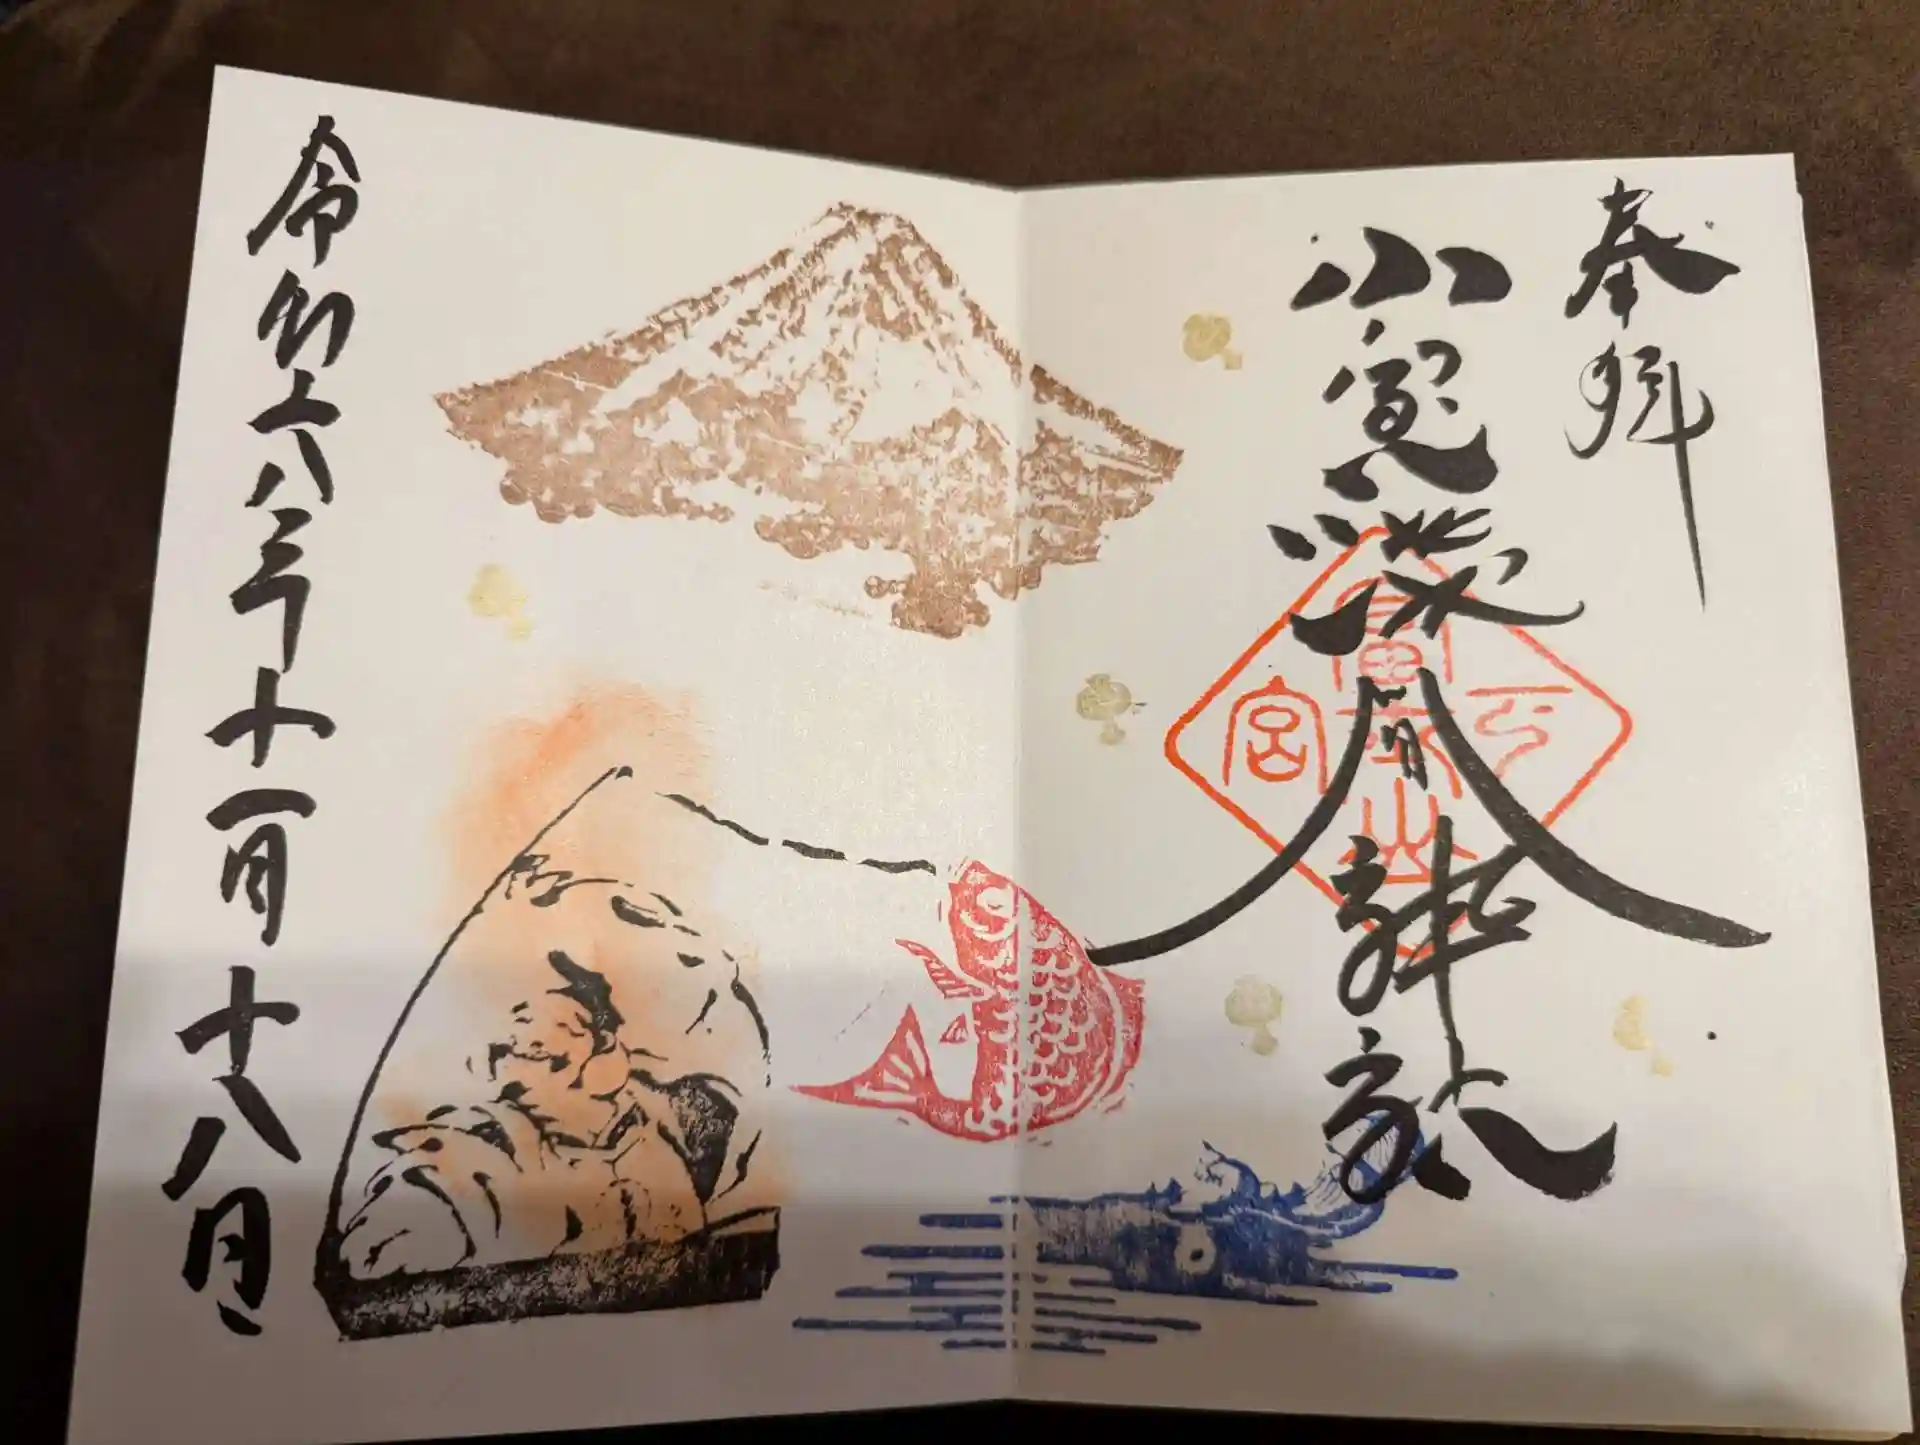 奉拝
小室淺間神社
富士山
下宮
令和六年十一月十八日